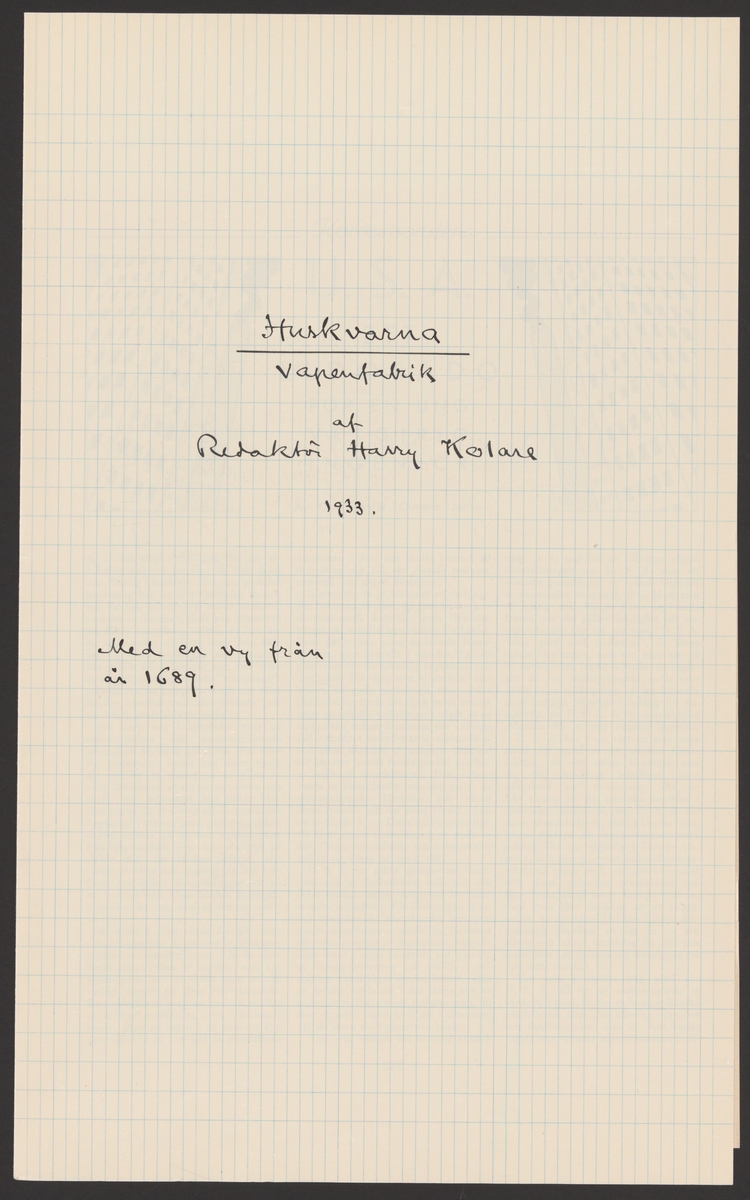 Huskvarna
Vapenfabrik
af
Redaktör Harry Kolare
1933.
Med en vy från
år 1689.